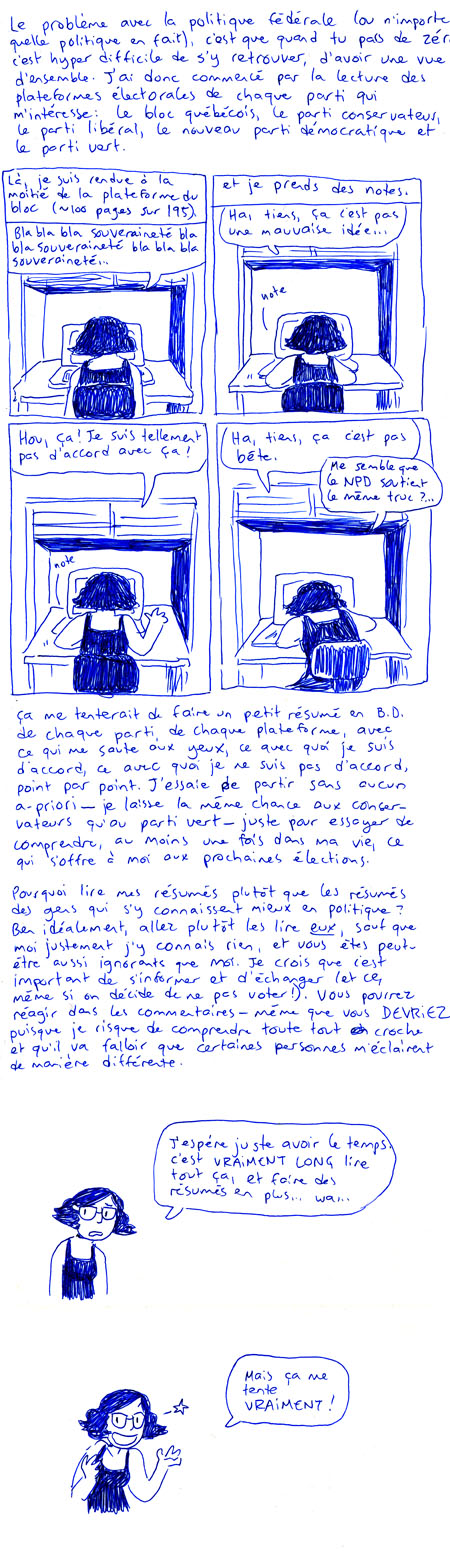 Le problème avec la politique fédérale (ou n'importe
quelle politique en fait), c'est que quand tu pars de zér
c'est hyper difficile de s'y retrouver, d'avoir une vue
d'ensemble. J'ai donc commencé par la lecture des
plateformes électorales de chaque parti qui
m'intéresse: le bloc québécois, le parti conservateur,
le parti libéral, le nouveau parti démocratique et
le parti vert.
Là, je suis rendue à la
moitié de la plateforme du
bloc (~100 pages sur 195).
Bla bla bla souveraineté bla
bla souveraineté bla bla bla
souveraineté...
et je prends des notes.
Ha, tiens, ça c'est pas
une mauvaise idée...
note
Hou, ça! Je suis tellement
pas d'accord avec ça!
note
Ha, tiens, ça c'est pas
bête.
Me semble que
le NPD soutient
le même truc?...
Ça me tenterait de faire un petit résumé en B.D.
de chaque parti, de chaque plateforme, avec
ce qui me saute aux yeux, ce avec quoi je suis
d'accord, ce avec quoi je ne suis pas d'accord,
point par point. J'essaie de partir sans aucun
a-priori — je laisse la même chance aux conser-
vateurs qu'au parti vert — juste pour essayer de
comprendre, au moins une fois dans ma vie, ce
qui s'offre à moi aux prochaines élections.
Pourquoi lire mes résumés plutôt que les résumés
des gens qui s'y connaissent mieux en politique?
Ben idéalement, allez plutôt les lire eux, sauf que
moi justement j'y connais rien, et vous êtes peut-
être aussi ignorants que moi. Je crois que c'est
important de s'informer et d'échanger (et ce,
même si on décide de ne pas voter!). Vous pourrez
réagir dans les commentaires — même que vous DEVRIEZ
puisque je risque de comprendre toute tout croche
et qu'il va falloir que certaines personnes m'éclairent
de manière différente.
J'espère juste avoir le temps.
c'est VRAIMENT LONG lire
tout ça, et faire des
résumés en plus... wa...
Mais ça me
tente
VRAIMENT!